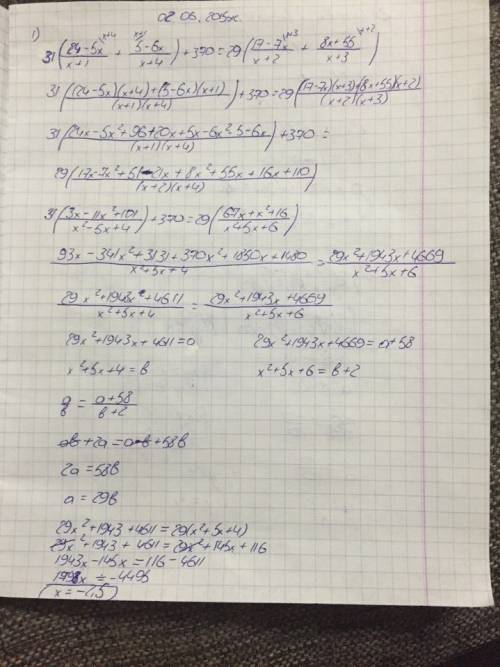 02.06.
1)
31((24-5x)/(x+1) \x+4 + (5-6x)/(x+4) \x+1) + 370 = 29((17-7x)/(x+2) \x+3 + (8x+55)/(x+3) \x+2)
31(((24-5x)(x+4)+(5-6x)(x+1))/((x+1)(x+4))) + 370 = 29(((17-7x)(x+3)+(8x+55)(x+2))/((x+2)(x+3)))
31((24x-5x²+96+20x+5x-6x²+5-6x)/((x+1)(x+4))) + 370 =
29((17x-7x²+51-21x+8x²+55x+16x+110)/((x+2)(x+4)))
31((3x-11x²+101)/(x²-5x+4)) + 370 = 29((67x+x²+16)/(x²+5x+6))
(93x-341x²+3131+370x²+1850x+1480)/(x²+5x+4) = (29x²+1943x+4669)/(x²+5x+6)
(29x²+1943x+4611)/(x²+5x+4) = (29x²+1943x+4669)/(x²+5x+6)
29x²+1943x+4611=a 29x²+1943x+4669=a+58
x²+5x+4=b x²+5x+6=b+2
a/b = (a+58)/(b+2)
ab+2a=ab+58b
2a=58b
a=29b
29x²+1943+4611=29(x²+5x+4)
29x²+1943+4611=29x²+145x+116
1943x-145x=116-4611
1798x=-4495
x=-2,5